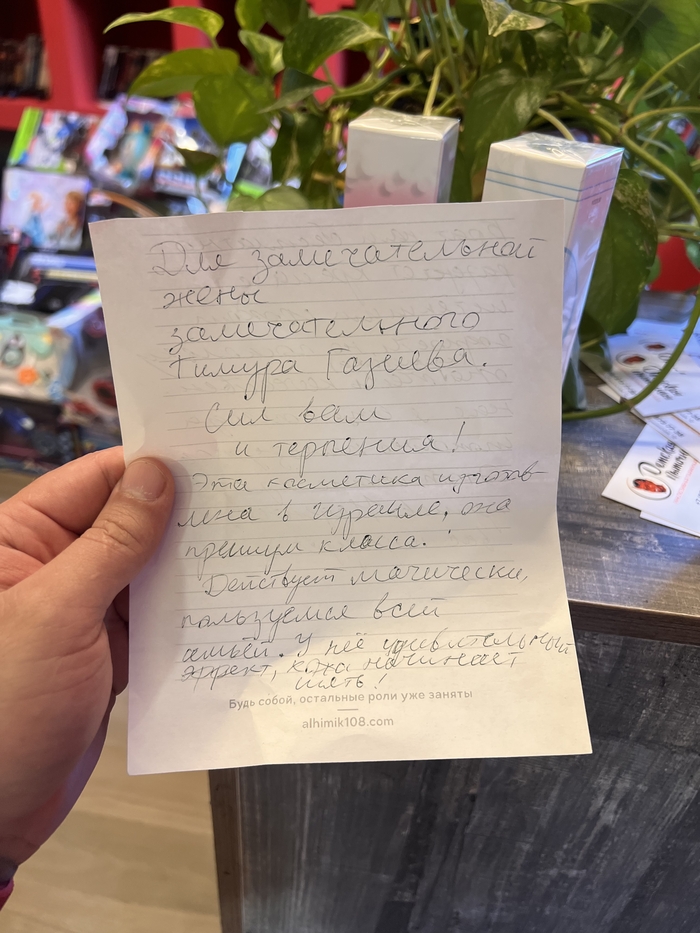 Для замечательной
жены
замечательного
Тимура Газиева.
Сил вам
и терпения!
Эта косметика изготов-
лена в Израиле, она
премиум класса.
Действует магически,
пользуемся всей
семьёй. У неё удивительный
эффект, кожа начинает
сиять!
Будь собой, остальные роли уже заняты
alhimik108.com